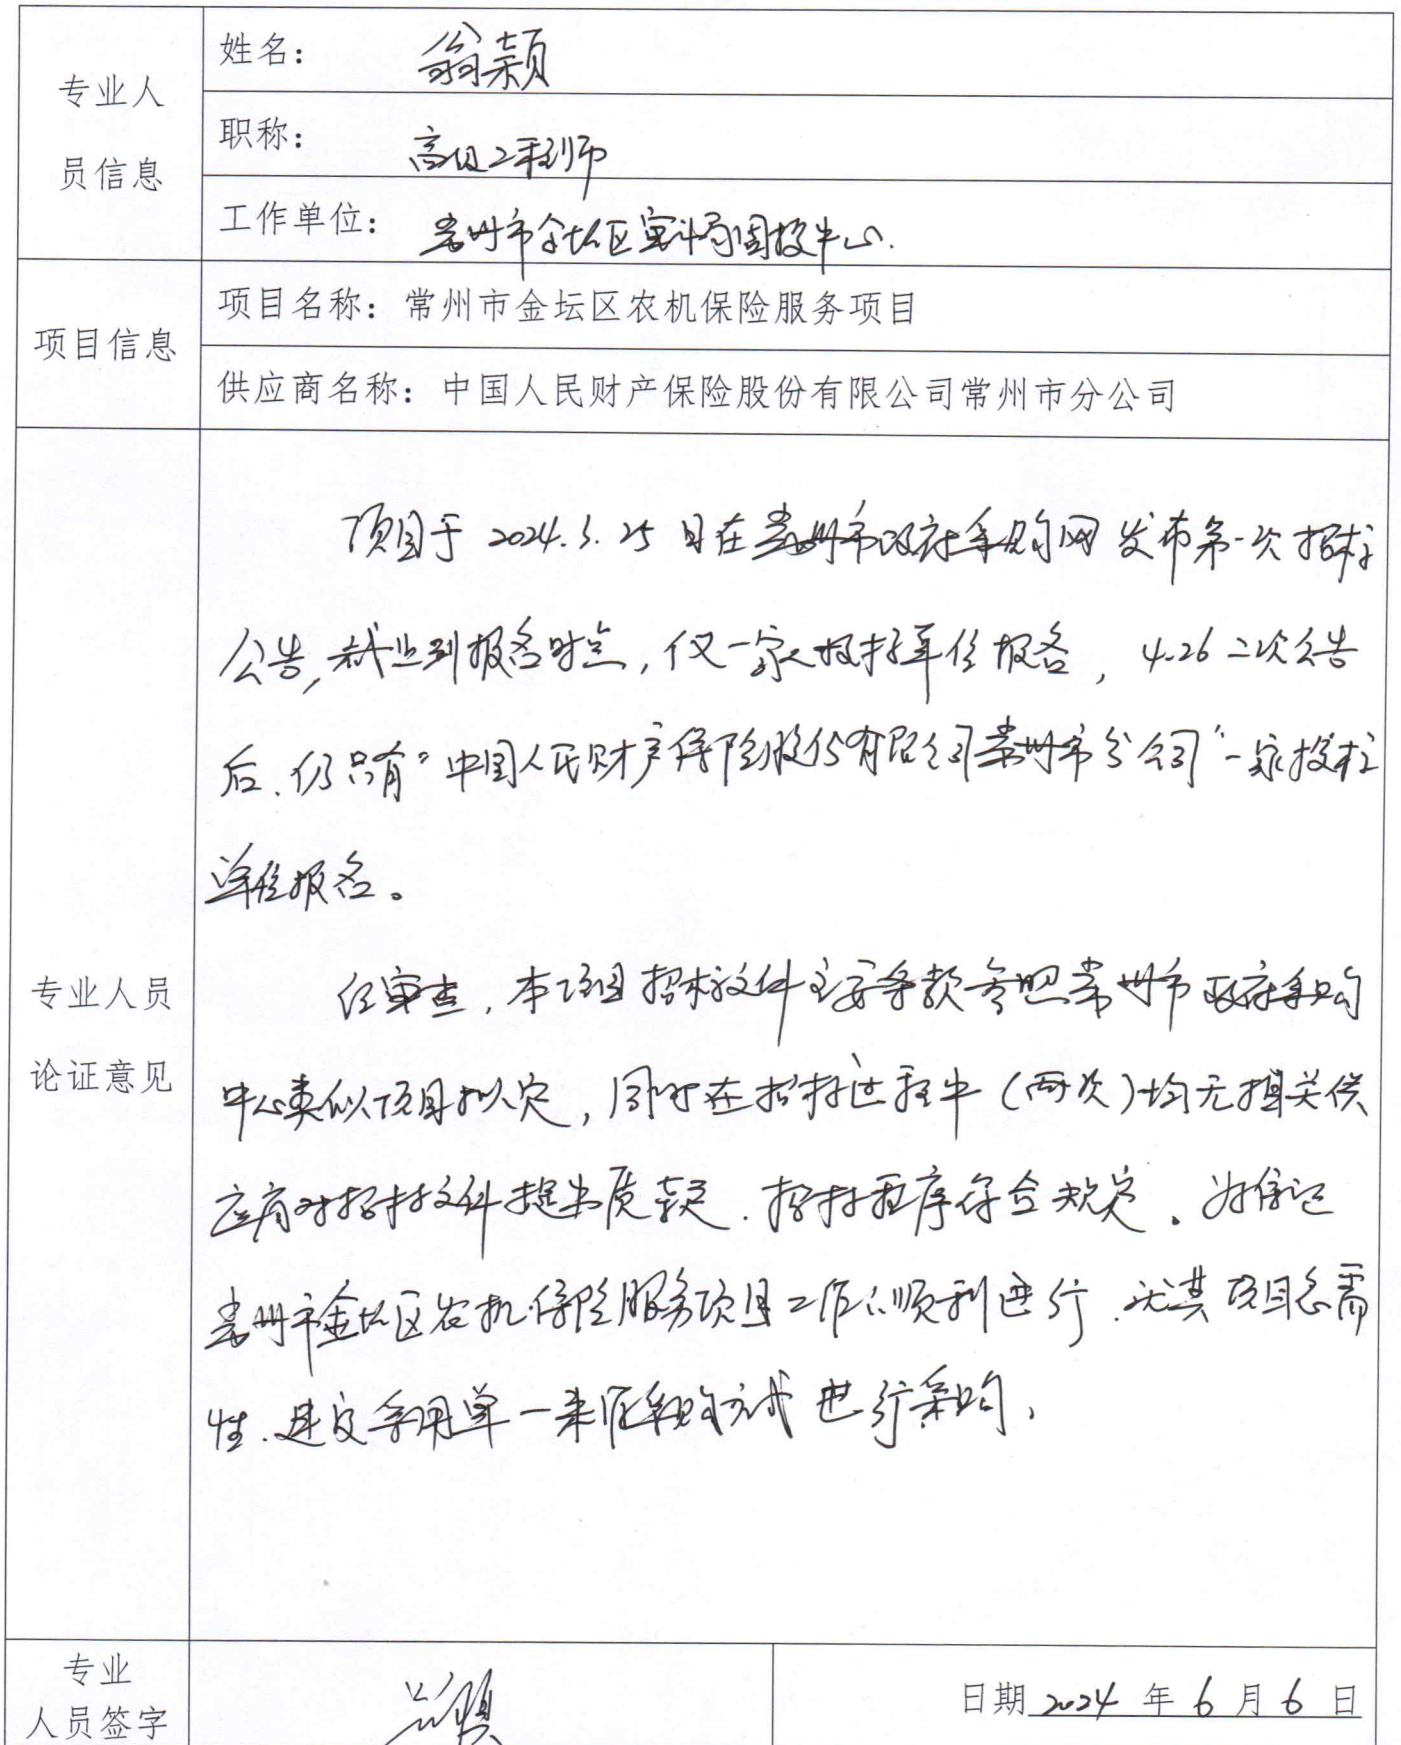 专业人
员信息
姓名：翁颖
职称：高级工程师
工作单位：常州市金坛区审计局固投中心.
项目信息
项目名称：常州市金坛区农机保险服务项目
供应商名称：中国人民财产保险股份有限公司常州市分公司
专业人员
论证意见
项目于2024.3.25日在常州市政府采购网发布第一次招标
公告，截止到报名时点，仅一家投标单位报名，4.26二次公告
后、仍只有“中国人民财产保险股份有限公司常州市分公司”一家投标
单位报名。
经审查，本项目招标文件主要条款参照常州市政府采购
中心类似项目拟定，同时在招标过程中（两次）均无相关供
应商对招标文件提出质疑、招标程序符合规定。为保证
常州市金坛区农机保险服务项目工作的顺利进行、尤其项目急需
性、建议采用单一来源采购方式进行采购，
专业
人员签字
翁颖
日期 2024 年 6 月 6 日